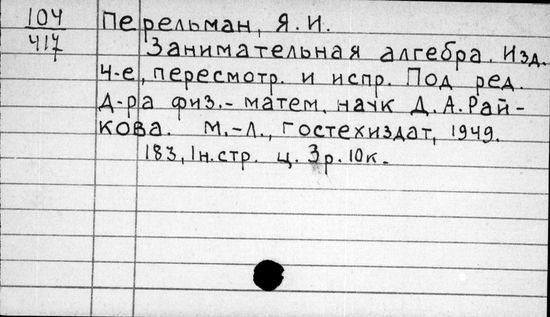 104 Перельман, Я. И.
417 Занимательная алгебра. Изд.
4-е, пересмотр. и испр. Под ред.
Д-ра физ.-матем. наук Д. А. Рай-
кова. М.-Л., Гостехиздат, 1949.
183, 1н.стр. ц. 3р. 10к.